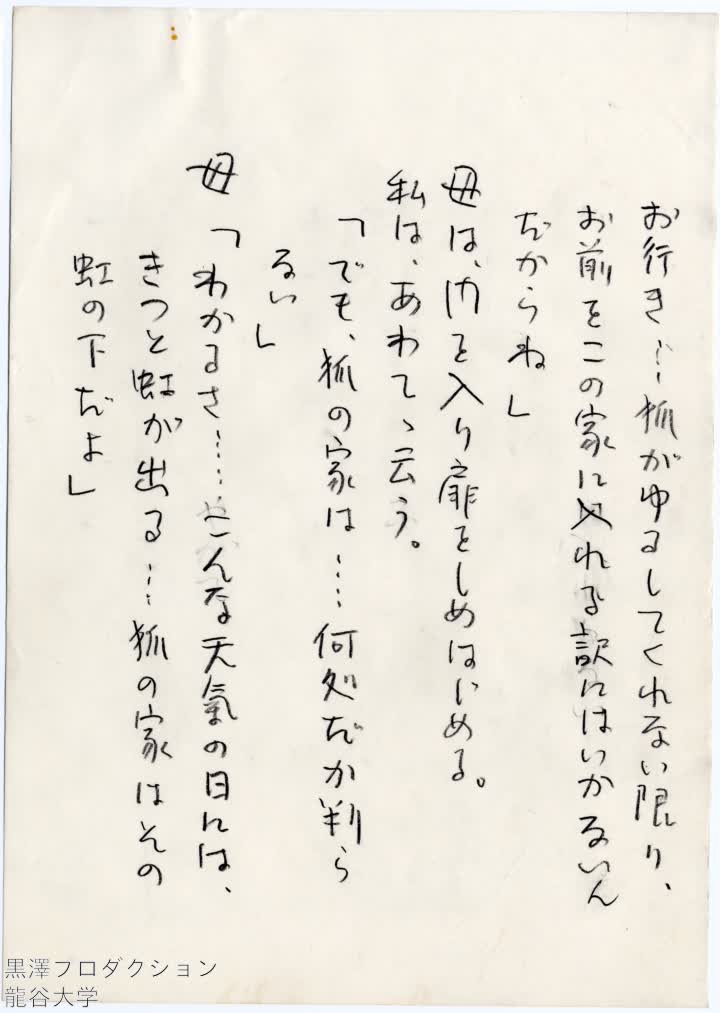 お行き…狐がゆるしてくれない限り、
お前をこの家に入れる訳にはいかないん
だからね」
母は、内を入り扉をしめはじめる。
私は、あわてゝ云う。
「でも、狐の家は……何処だか判ら
ない」
母「わかるさ……こんな天氣の日には、
きっと虹が出る…狐の家はその
虹の下だよ」
黒澤プロダクション
龍谷大学